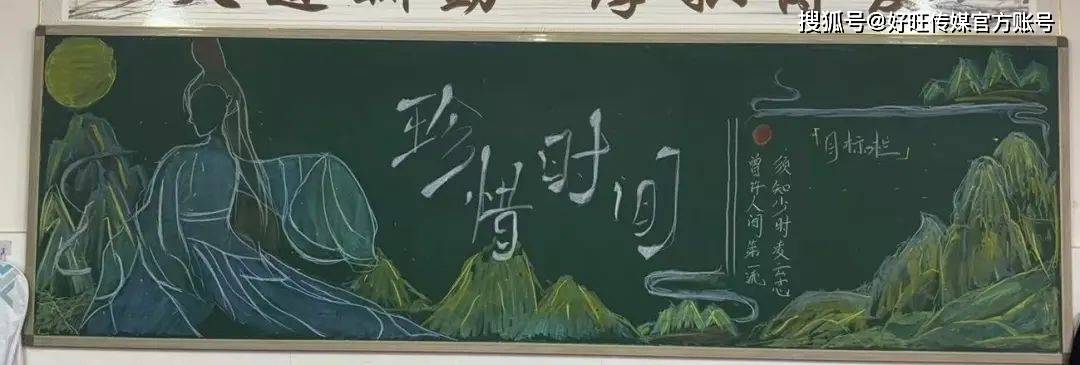 搜狐号@好旺传媒官方账号
珍惜时间
「目标栏」
须知少时凌云志
曾许人间第一流